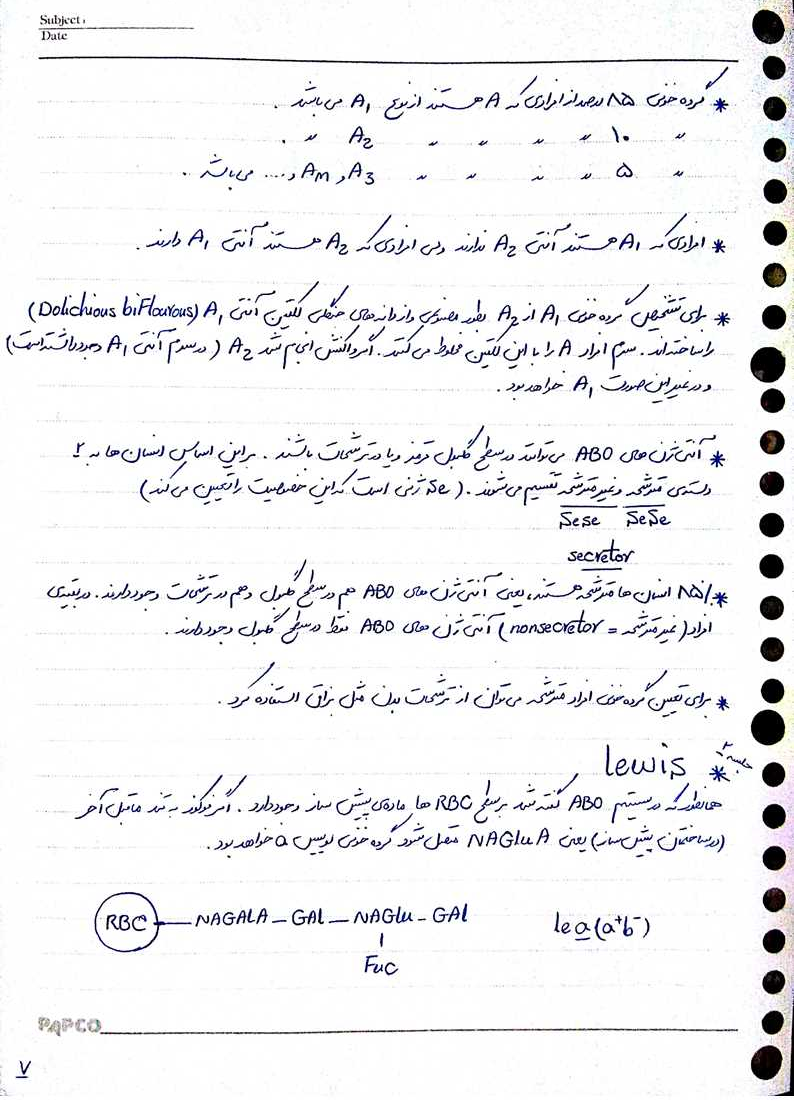 Subject:
Date
* گروه خونی ۸۵ درصد از افرادی که A هستند از نوع A1 می باشد.
〃 ۱۰ 〃 〃 〃 〃 A2 〃 .
〃 ۵ 〃 〃 〃 〃 A3 و Am و .... می باشد.
* افرادی که A1 هستند آنتی A2 ندارند ولی افرادی که A2 هستند آنتی A1 دارند.
* برای تشخیص گروه خونی A1 از A2 بطور مصنوعی و از دانه های جنگلی لکتین آنتی A1 (Dolichious biflourous)
را ساخته اند. سرم افراد A را با این لکتین مخلوط می کنند. اگر واکنش انجام شد A2 (در سرم آنتی A1 وجود داشته است)
و در غیر این صورت A1 خواهد بود.
* آنتی ژن های ABO می توانند در سطح گلبول قرمز و یا در ترشحات باشند. بر این اساس انسان ها به ۲
دسته‌ی مترشحه و غیر مترشحه تقسیم می شوند. (Se ژنی است که این خصوصیت را تعیین می کند)
SeSe SeSe
secretor
* ۸۵٪ انسان ها مترشحه هستند، یعنی آنتی ژن های ABO هم در سطح گلبول و هم در ترشحات وجود دارند. در بقیه‌ی
افراد (غیر مترشحه = nonsecretor) آنتی ژن های ABO فقط در سطح گلبول وجود دارند.
* برای تعیین گروه خونی افراد مترشحه می توان از ترشحات بدن مثل بزاق استفاده کرد.
جلسه ۲
* lewis
همانطور که در سیستم ABO گفته شد بر سطح RBC ها ماده‌ی پیش ساز وجود دارد. اگر فوکوز به قند ماقبل آخر
(در ساختمان پیش ساز) یعنی NAGlu A متصل شود گروه خونی لوییس a خواهد بود.
RBC — NAGALA — GAL — NAGlu — GAL lea (a+b-)
Fuc
PAPCO
۷